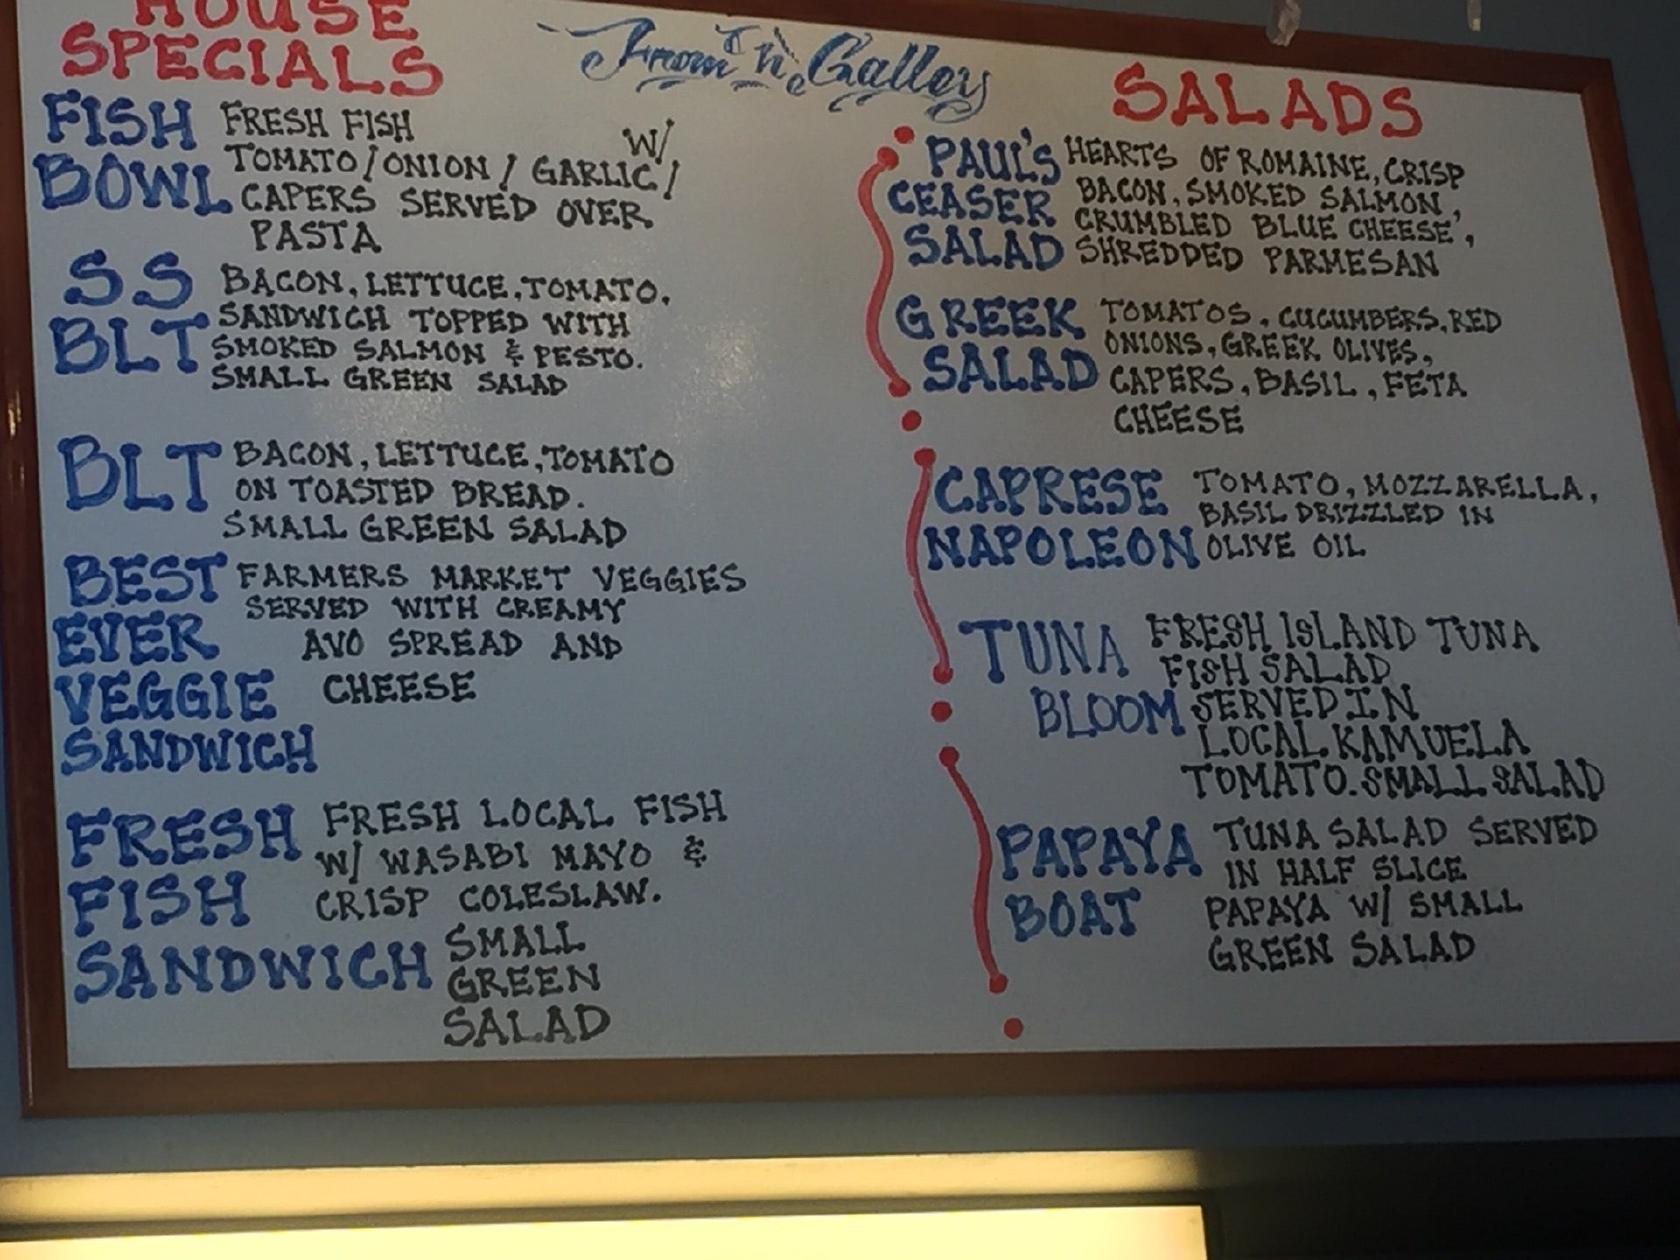 HOUSE
SPECIALS
FISH
BOWL
FRESH FISH W/
TOMATO/ONION/GARLIC/
CAPERS SERVED OVER
PASTA
SS
BLT
BACON, LETTUCE, TOMATO,
SANDWICH TOPPED WITH
SMOKED SALMON & PESTO.
SMALL GREEN SALAD
BLT
BACON, LETTUCE, TOMATO
ON TOASTED BREAD.
SMALL GREEN SALAD
BEST
EVER
VEGGIE
SANDWICH
FARMERS MARKET VEGGIES
SERVED WITH CREAMY
AVO SPREAD AND
CHEESE
FRESH
FISH
SANDWICH
FRESH LOCAL FISH
W/ WASABI MAYO &
CRISP COLESLAW.
SMALL
GREEN
SALAD
From Gallery
SALADS
PAUL'S
CEASER
SALAD
HEARTS OF ROMAINE, CRISP
BACON, SMOKED SALMON,
CRUMBLED BLUE CHEESE,
SHREDDED PARMESAN
GREEK
SALAD
TOMATOS, CUCUMBERS, RED
ONIONS, GREEK OLIVES,
CAPERS, BASIL, FETA
CHEESE
CAPRESE
NAPOLEON
TOMATO, MOZZARELLA,
BASIL DRIZZLED IN
OLIVE OIL
TUNA
BLOOM
FRESH ISLAND TUNA
FISH SALAD
SERVED IN
LOCAL KAMUELA
TOMATO. SMALL SALAD
PAPAYA
BOAT
TUNA SALAD SERVED
IN HALF SLICE
PAPAYA W/ SMALL
GREEN SALAD